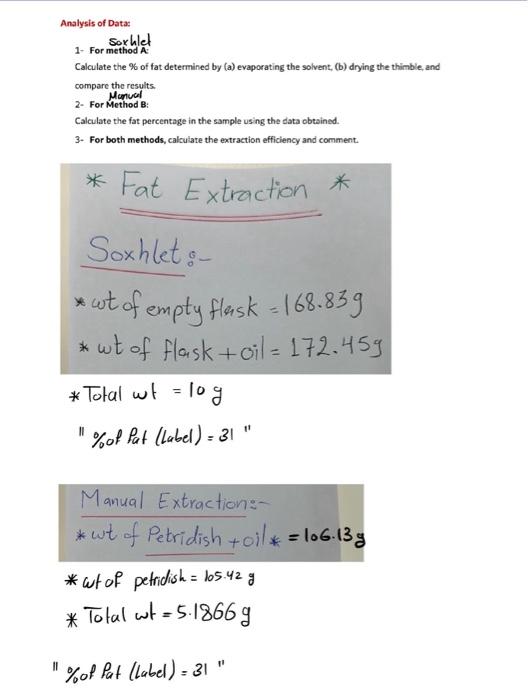 Analysis of Data:
Soxhlet
1- For method A:
Calculate the % of fat determined by (a) evaporating the solvent, (b) drying the thimble, and
compare the results.
Manual
2- For Method B:
Calculate the fat percentage in the sample using the data obtained.
3- For both methods, calculate the extraction efficiency and comment.
* Fat Extraction *
Soxhlet:-
* wt of empty flask = 168.83g
* wt of flask + oil = 172.45g
* Total wt = 10 g
" % of fat (Label) = 31 "
Manual Extraction:-
* wt of Petridish + oil * = 106.13g
* wt of petridish = 105.42 g
* Total wt = 5.1866 g
" % of fat (Label) = 31 "